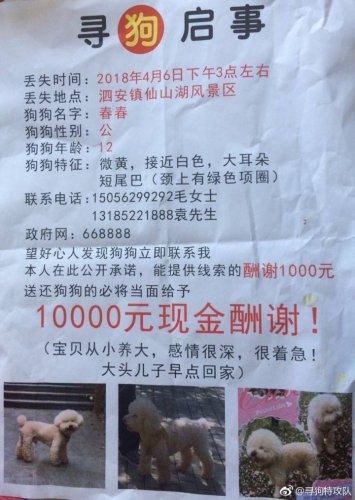 寻狗启事
丢失时间：2018年4月6日下午3点左右
丢失地点：泗安镇仙山湖风景区
狗狗名字：春春
狗狗性别：公
狗狗年龄：12
狗狗特征：微黄，接近白色，大耳朵
短尾巴（颈上有绿色项圈）
联系电话：15056299292毛女士
13185221888袁先生
政府网：668888
望好心人发现狗狗立即联系我
本人在此公开承诺，能提供线索的酬谢1000元
送还狗狗的必将当面给予
10000元现金酬谢！
（宝贝从小养大，感情很深，很着急！
大头儿子早点回家）
@寻狗特攻队